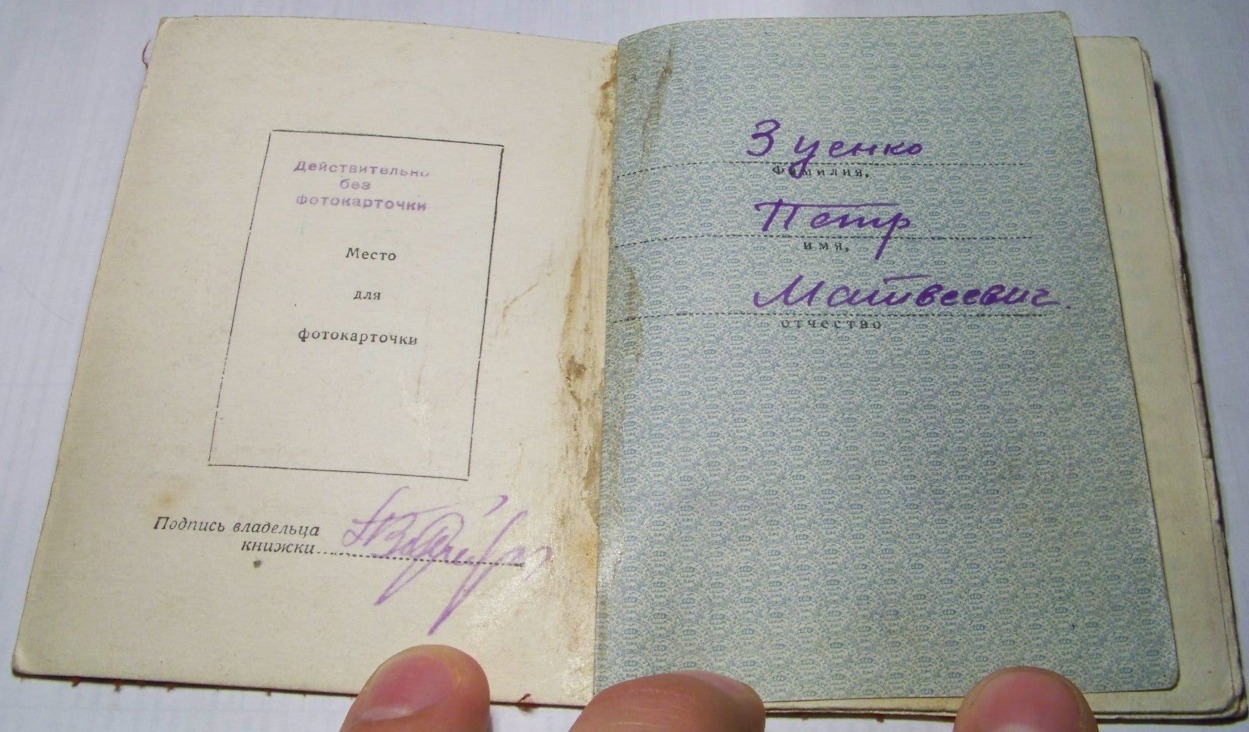 Действительно
без
фотокарточки
Место
для
фотокарточки
Подпись владельца
книжки
Зуенко
Фамилия,
Петр
имя,
Матвеевич.
отчество